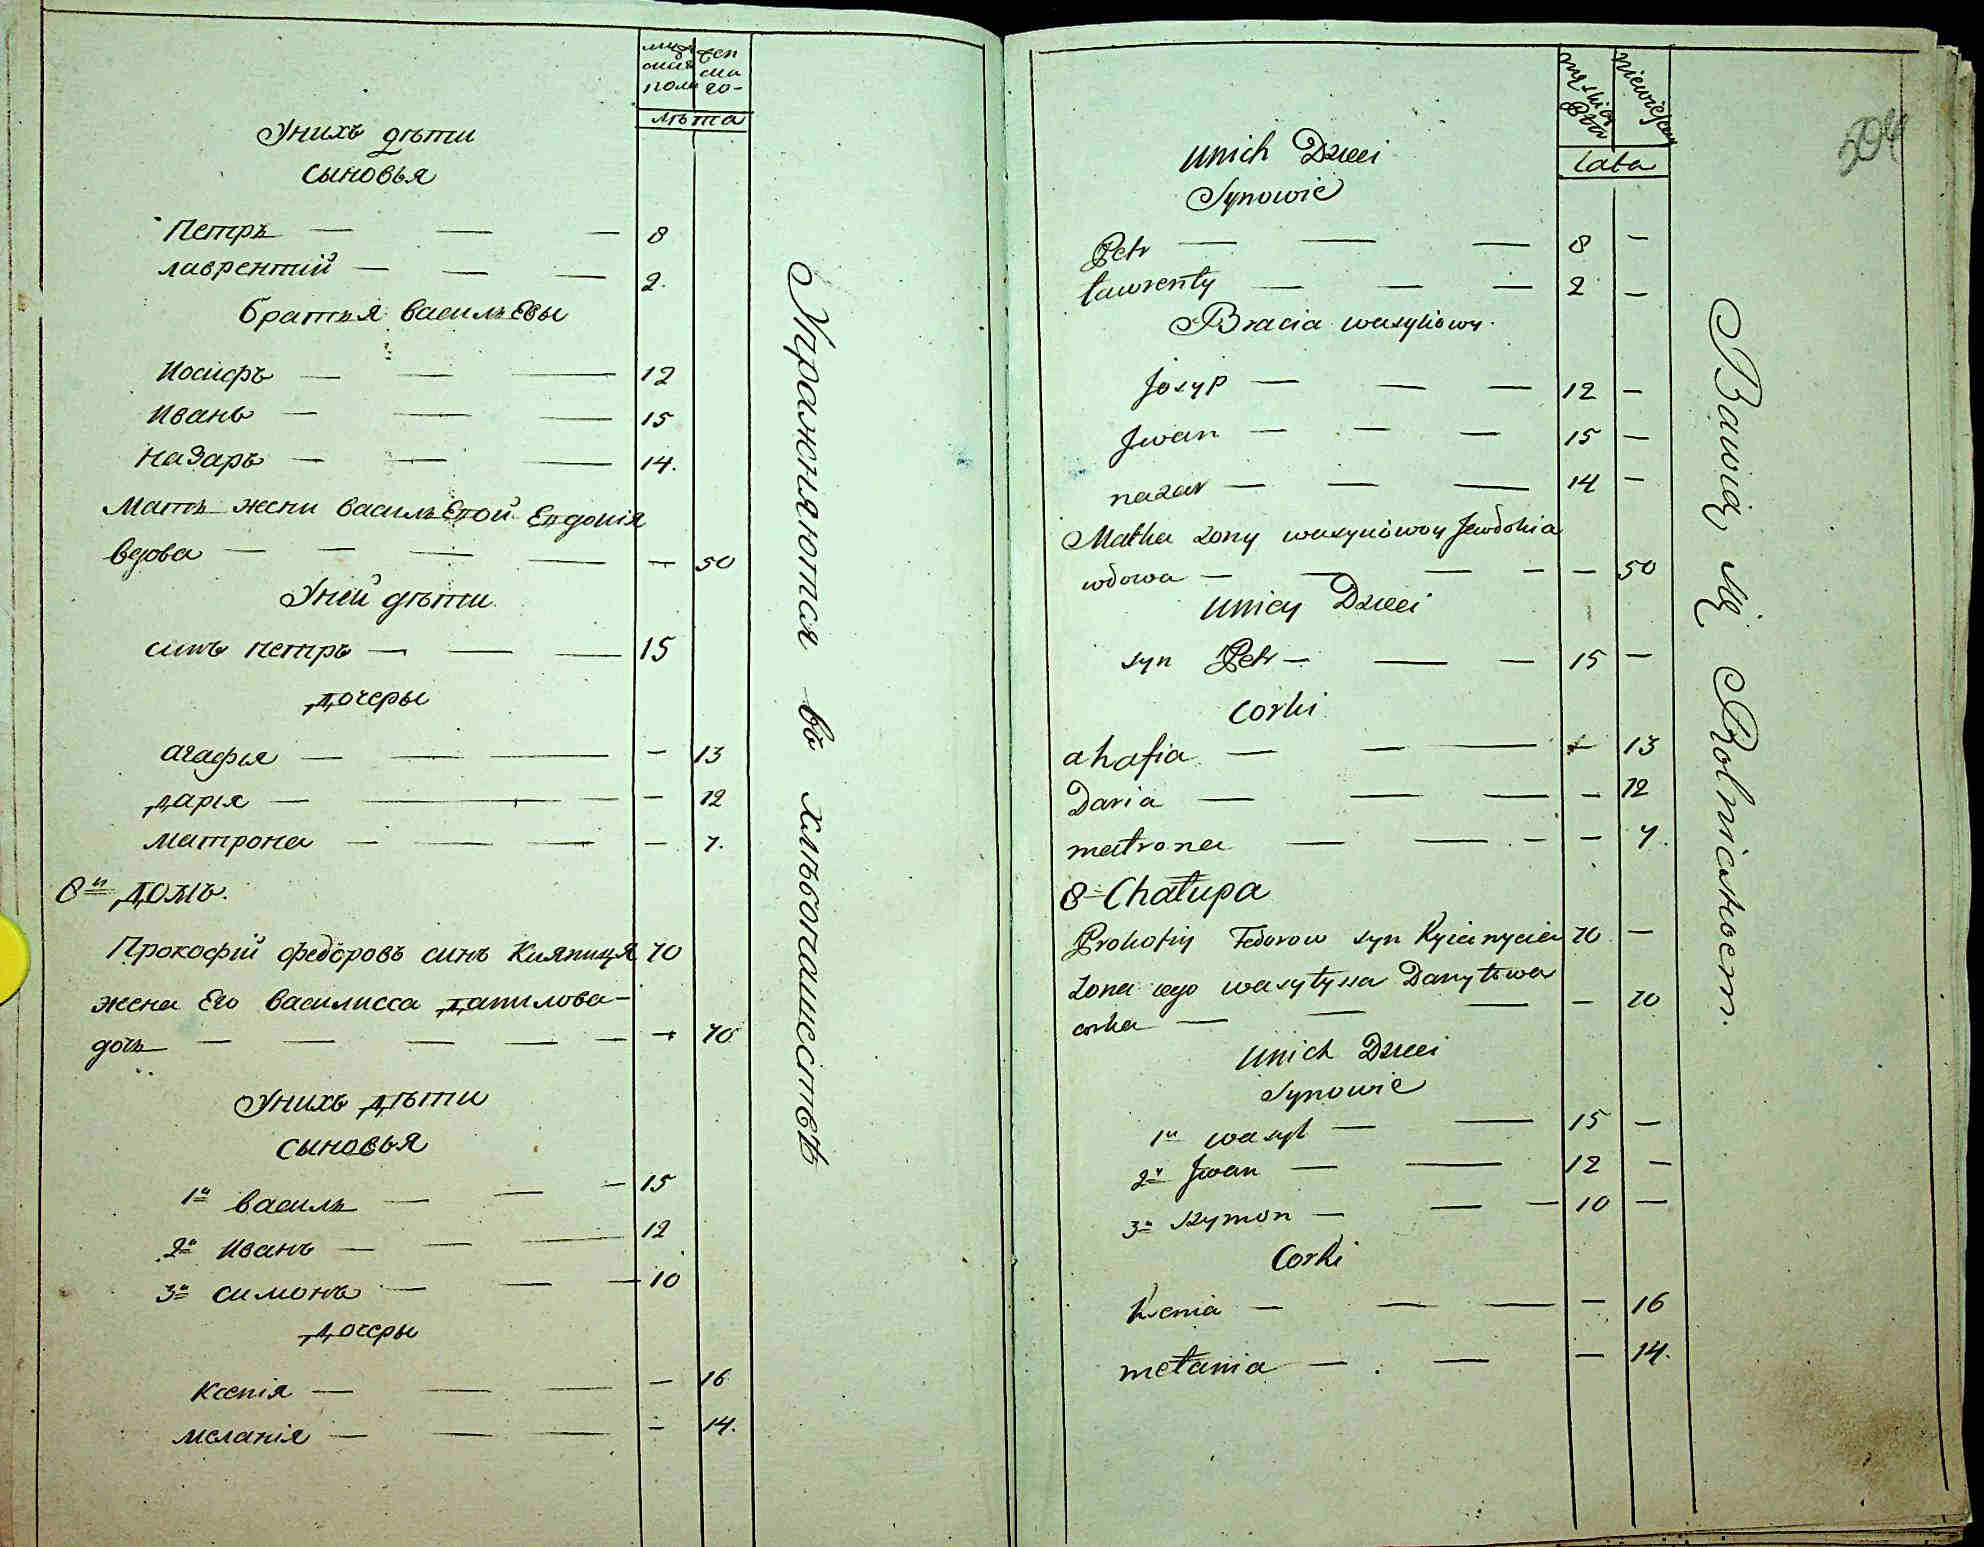 мужска полу
женска го-
лѣта
Унихъ дѣти
сыновья
Петръ — — — 8
лаврентій — — — 2.
братья васильевы
Иосифъ — — — 12
Иванъ — — — 15
Назаръ — — — 14.
Мать жени васильевой Евдокія
вдова — — — — — 50
Уней дѣти
синъ петръ — — — 15
дочеры
агафія — — — 13
дарія — — — — 12
матрона — — — — 7.
8й домъ.
Прокофій федоровъ синъ 70
жена Его василисса данилова-
дочь — — — — — — 70
Унихъ дѣти
сыновья
1й василь — — — 15
2й Иванъ — — — 12
3й симонъ — — — 10
дочеры
Ксенія — — — — 16
меланія — — — — 14.
Упражняются въ хлѣбопашествѣ
504
męskiey Płci
niewiesciey
Lata
unich Dzieci
Synowie
Petr — — — 8 —
Ławrenty — — — 2 —
Bracia wasylowy.
Josyp — — — 12 —
Jwan — — — 15 —
nazar — — — 14 —
Matka zony wasylowoy Jewdokia
wdowa — — — — — 50
unicy Dzieci
syn Petr — — — 15 —
corki
ahafia — — — — 13
Daria — — — — 12
matrona — — — — 7.
8 Chałupa
Prokofiy Fedorow syn 70 —
Zona iego wasyłyssa Danyłowa
corka — — — — 70
unich Dzieci
Synowie
1й wasyl — — 15 —
2й Jwan — — 12 —
3й Szymon — — — 10 —
Corki
Ksenia — — — — 16
mełania — — — 14.
Bawią się Rolnictwem.